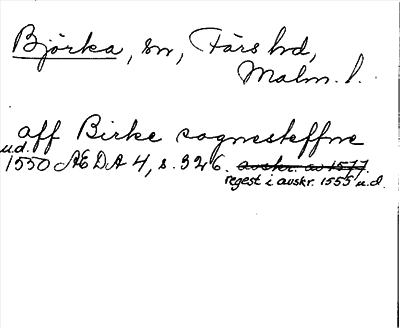 Björka, sn, Färs hd,
Malm. l.
aff Birke sognesteffne
u.d.
1550 ÆDA 4, s. 326. avskr. av 1577.
regest i avskr. 1555 u.d.